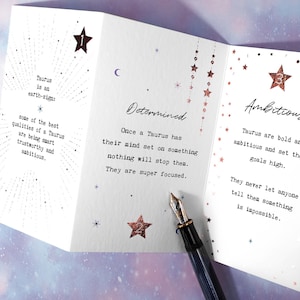 1
Taurus
is an
earth-sign:
some of the best
qualities of a Taurus
are being smart
trustworthy and
ambitious.
Determined
Once a Taurus has
their mind set on something
nothing will stop them.
They are super focused.
2
3
Ambitious
Taurus are bold an
ambitious and set the
goals high.
They never let anyone
tell them something
is impossible.